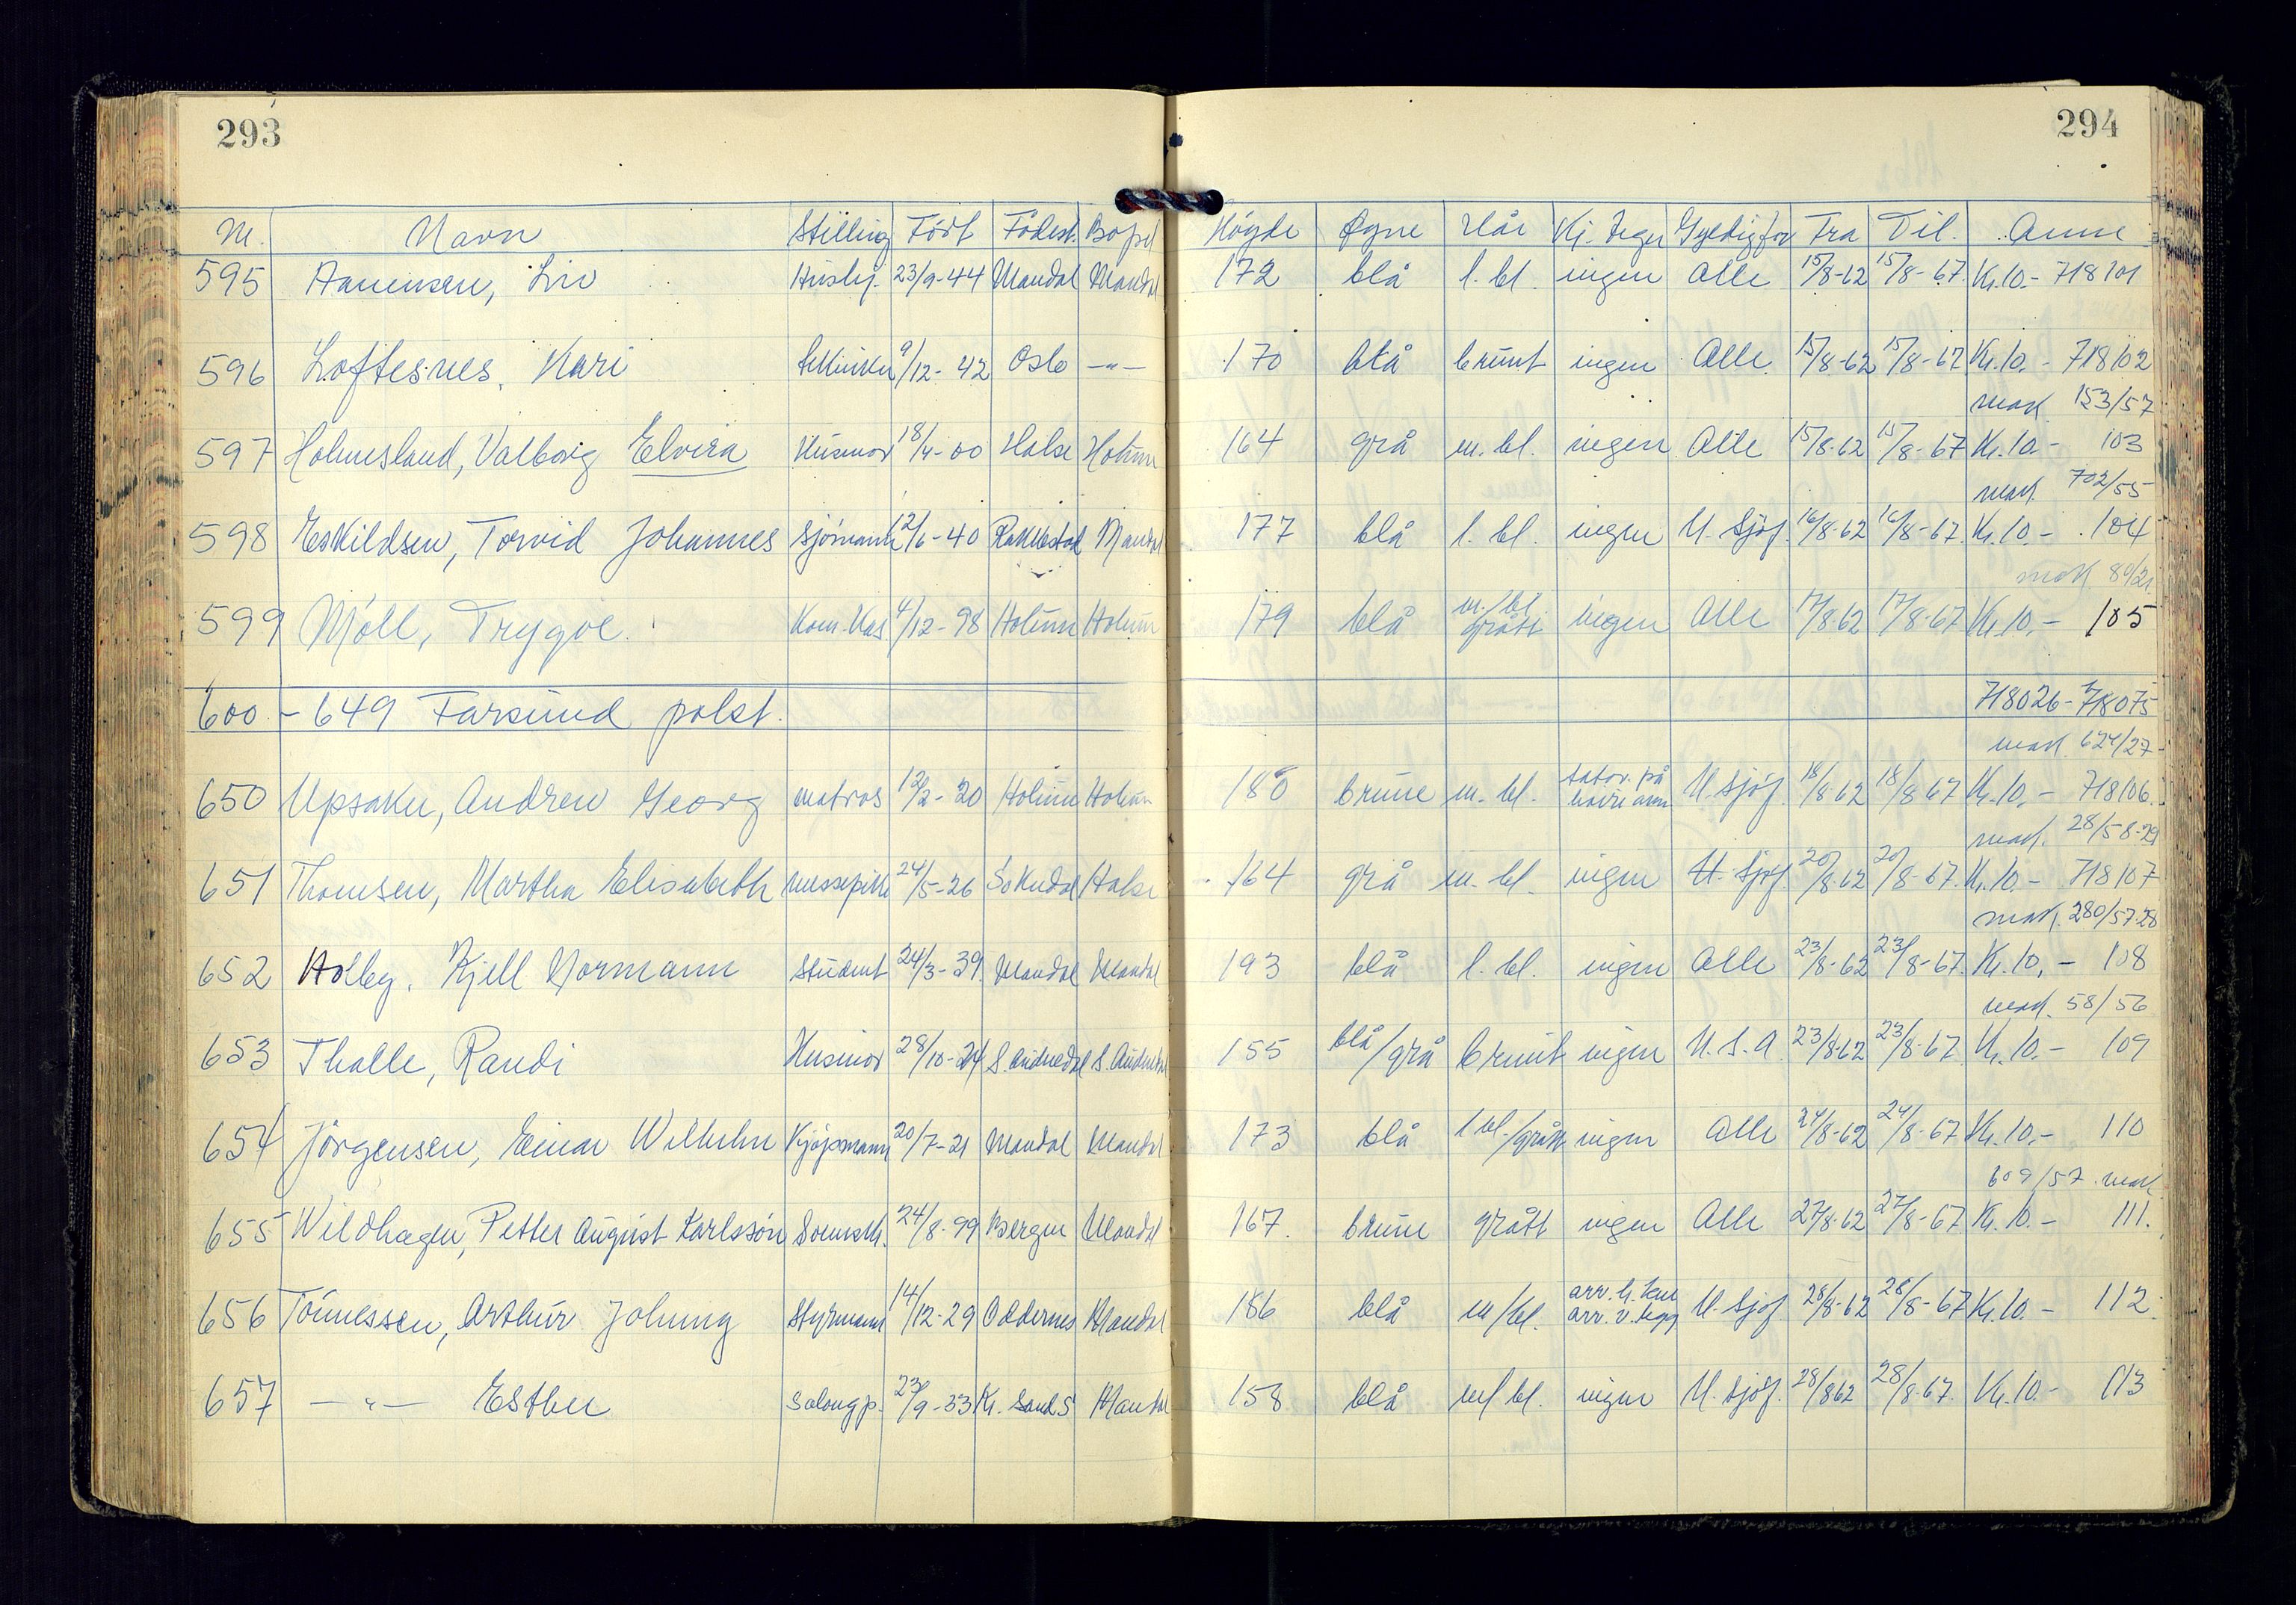 293
294
Nr. Navn Stilling Født Fødest. Bopel Høyde Øyne Hår Kj. tegn Gyldig for Fra Til Anm
595 Aanensen, Liv Hushj. 23/9-44 Mandal Mandal 172 blå l. bl. ingen Alle 15/8-62 15/8-67 Kr. 10.- 718101
596 Loftesnes, Kari 9/12-42 Oslo —"— 170 blå brunt ingen Alle 15/8-62 15/8-67 Kr. 10.- 718102
mak 153/57
597 Holmesland, Valborg Elvira Husmor 18/4-00 Halse Holum 164 grå m. bl. ingen Alle 15/8-62 15/8-67 Kr. 10.- 103
mak. 702/55
598 Eskildsen, Torvid Johannes Sjømann 12/6-40 Rakkestad Mandal 177 blå l. bl. ingen U. Sjøf. 16/8-62 16/8-67 Kr. 10.- 104
mak
599 Møll, Trygve Kom. Kas 4/12-98 Holum Holum 179 blå m./bl. grått ingen Alle 17/8-62 17/8-67 Kr. 10.- 105
600 - 649 Farsund polst. 718026-718075
mak. 624/27
650 Upsaker, Andrew Georg matros 12/2-20 Holum Holum 180 brune m. bl. tatov. på høire arm U. sjøf. 18/8-62 18/8-67 Kr. 10.- 718106
mak. 28/58-29
651 Thomsen, Martha Elisabeth messepike 24/5-26 Sokndal Halse 164 grå m. bl. ingen U. Sjøf. 20/8-62 20/8-67 Kr. 10.- 718107
mak. 280/57-28
652 Holby, Kjell Normann Student 24/3-39 Mandal Mandal 193 blå l. bl. ingen Alle 23/8-62 23/8-67 Kr. 10.- 108
mak. 58/56
653 Thalle, Randi Husmor 28/10-24 S. Audnedal S. Audnedal 155 blå/grå brunt ingen U.S.A. 23/8-62 23/8-67 Kr. 10.- 109
654 Jørgensen, Einar Wilhelm Kjøpmann 20/7-21 Mandal Mandal 173 blå l bl./grått ingen Alle 24/8-62 24/8-67 Kr. 10.- 110
609/57 mak
655 Wildhagen, Petter August Karlssøn 24/8-99 Bergen Mandal 167 brune grått ingen Alle 27/8-62 27/8-67 Kr. 10.- 111.
656 Tønnessen, Arthur Johnny Styrmann 14/12-29 Oddernes Mandal 186 blå m/bl. arr. v. legg U. sjøf. 28/8-62 28/8-67 Kr. 10.- 112
657 —"— Esther Salongp. 23/9-33 Kr. Sand S Mandal 158 blå m/bl. ingen U. sjøf. 28/8 62 28/8-67 Kr. 10.- 113